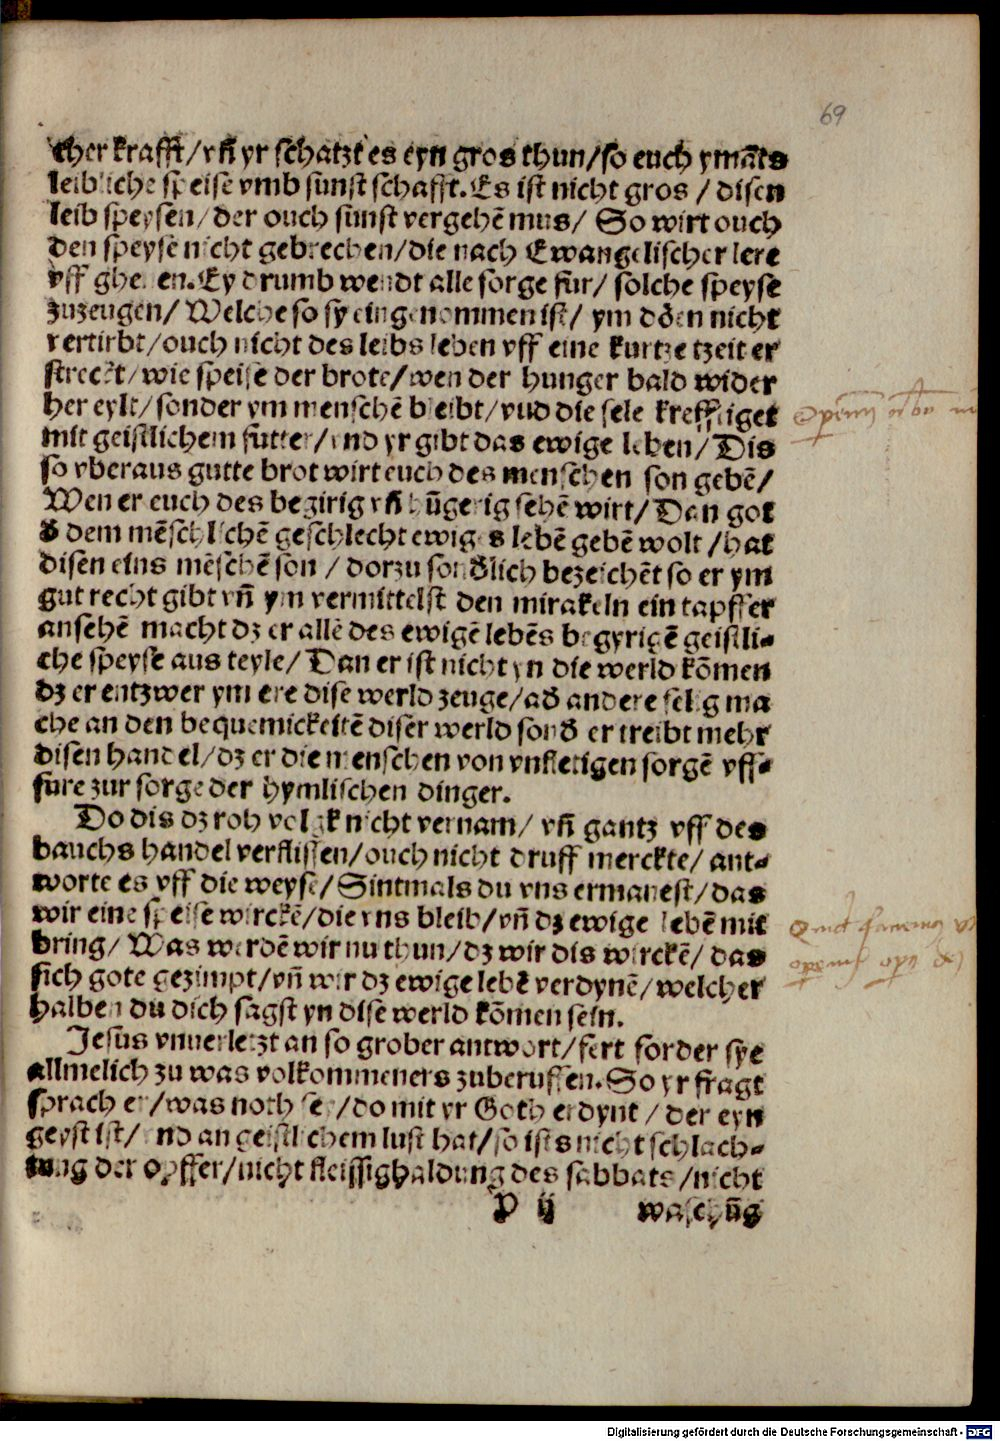 69
cher krafft/vñ yr schatzt es eyn gros thun/so euch ymãts
leibliche speise vmb sunst schafft. Es ist nicht gros / disen
leib speysen/der ouch sunst vergehẽ mus/ So wirt ouch
den speysẽ nicht gebrechen/die nach Ewangelischer lere
vff ghe en. Ey drumb wendt alle sorge fur/ solche speyse
zuzeugen/ Welche so sy eingenommen ist/ ym dðen nicht
vertirbt/ouch nicht des leibs leben vff eine kurtze tzeit er
streckt/wie speise der brote/wen der hunger bald wider
her eylt/sonder ym menschẽ bleibt/vnd die sele krefftiget
mit geistlichem futter/vnd yr gibt das ewige leben/ Dis
so vberaus gutte brot wirt euch des menschen son gebẽ/
Wen er euch des begirig vñ hũgerig sehẽ wirt/ Dan got
ð dem mẽschlichẽ geschlecht ewiges lebẽ gebẽ wolt /hat
disen eins mẽschẽ son / dorzu sonðlich bezeichẽt so er ym
gut recht gibt vñ ym vermittelst den mirakeln ein tapffer
ansehẽ macht dz er allẽ des ewigẽ lebẽs begyrigẽ geistli-
che speyse aus teyle/ Dan er ist nicht yn die werld kõmen
dz er entzwer ym ere dise werld zeuge/að andere selig ma
che an den bequemickeitẽ diser werld sonð er treibt mehr
disen handel/dz er die menschen von vnfletigen sorgẽ vff-
fure zur sorge der hymlischen dinger.
Do dis dz roh volgk nicht vernam/ vñ gantz vff des
bauchs handel verflissen/ouch nicht druff merckte/ ant-
worte es vff die weyse/ Sintmals du vns ermanest/das
wir eine speise wirckẽ/die vns bleib/vñ dz ewige lebẽ mit
bring/ Was werdẽ wir nu thun/dz wir dis wirckẽ/ das
sich gote gezimpt/vñ wir dz ewige lebẽ verdynẽ/welcher
halben du dich sagst yn dise werld kõmen sein.
Jesus vnuerletzt an so grober antwort/fert forder sye
allmelich zu was volkommeners zuberuffen. So yr fragt
sprach er/was noth sey/do mit yr Goth erdynt / der eyn
geyst ist/vnd an geistlichem lust hat/so ists nicht schlach-
tung der opffer/nicht fleissighaldung des sabbats/nicht
P ij waschũg
Digitalisierung gefördert durch die Deutsche Forschungsgemeinschaft - DFG